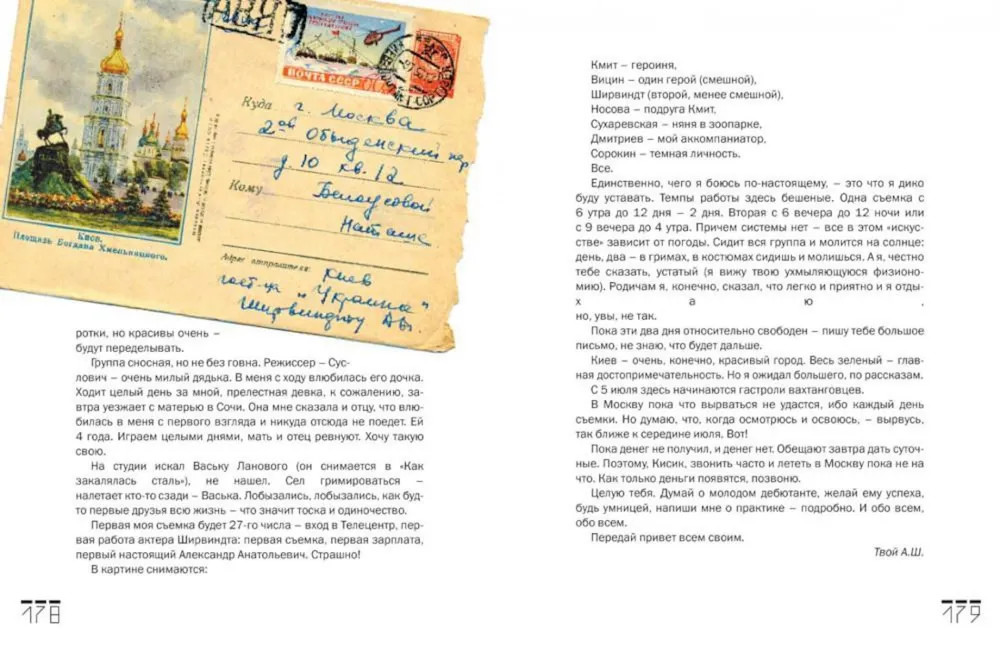 АВИА
ПОЧТА СССР
Киев.
Площадь Богдана Хмельницкого.
Куда г. Москва
2ой Обыденский пер
д. 10 кв. 12
Кому Белоусовой
Наташе
Адрес отправителя: Киев
гост-ца "Украина"
Ширвиндту А.
ротки, но красивы очень –
будут переделывать.
Группа сносная, но не без говна. Режиссер – Сус-
лович – очень милый дядька. В меня с ходу влюбилась его дочка.
Ходит целый день за мной, прелестная девка, к сожалению, за-
втра уезжает с матерью в Сочи. Она мне сказала и отцу, что влю-
билась в меня с первого взгляда и никуда отсюда не поедет. Ей
4 года. Играем целыми днями, мать и отец ревнуют. Хочу такую
свою.
На студии искал Ваську Ланового (он снимается в «Как
закалялась сталь»), не нашел. Сел гримироваться –
налетает кто-то сзади – Васька. Лобызались, лобызались, как буд-
то первые друзья всю жизнь – что значит тоска и одиночество.
Первая моя съемка будет 27-го числа – вход в Телецентр, пер-
вая работа актера Ширвиндта: первая съемка, первая зарплата,
первый настоящий Александр Анатольевич. Страшно!
В картине снимаются:
178
Кмит – героиня,
Вицин – один герой (смешной),
Ширвиндт (второй, менее смешной),
Носова – подруга Кмит,
Сухаревская – няня в зоопарке,
Дмитриев – мой аккомпаниатор,
Сорокин – темная личность.
Все.
Единственно, чего я боюсь по-настоящему, – это что я дико
буду уставать. Темпы работы здесь бешеные. Одна съемка с
6 утра до 12 дня – 2 дня. Вторая с 6 вечера до 12 ночи или
с 9 вечера до 4 утра. Причем системы нет – все в этом «искус-
стве» зависит от погоды. Сидит вся группа и молится на солнце:
день, два – в гримах, в костюмах сидишь и молишься. А я, честно
тебе сказать, устатый (я вижу твою ухмыляющуюся физионо-
мию). Родичам я, конечно, сказал, что легко и приятно и я отды-
х а ю ,
но, увы, не так.
Пока эти два дня относительно свободен – пишу тебе большое
письмо, не знаю, что будет дальше.
Киев – очень, конечно, красивый город. Весь зеленый – глав-
ная достопримечательность. Но я ожидал большего, по рассказам.
С 5 июля здесь начинаются гастроли вахтанговцев.
В Москву пока что вырваться не удастся, ибо каждый день
съемки. Но думаю, что, когда осмотрюсь и освоюсь, – вырвусь,
так ближе к середине июля. Вот!
Пока денег не получил, и денег нет. Обещают завтра дать суточ-
ные. Поэтому, Кисик, звонить часто и лететь в Москву пока не на
что. Как только деньги появятся, позвоню.
Целую тебя. Думай о молодом дебютанте, желай ему успеха,
будь умницей, напиши мне о практике – подробно. И обо всем,
обо всем.
Передай привет всем своим.
Твой А.Ш.
179